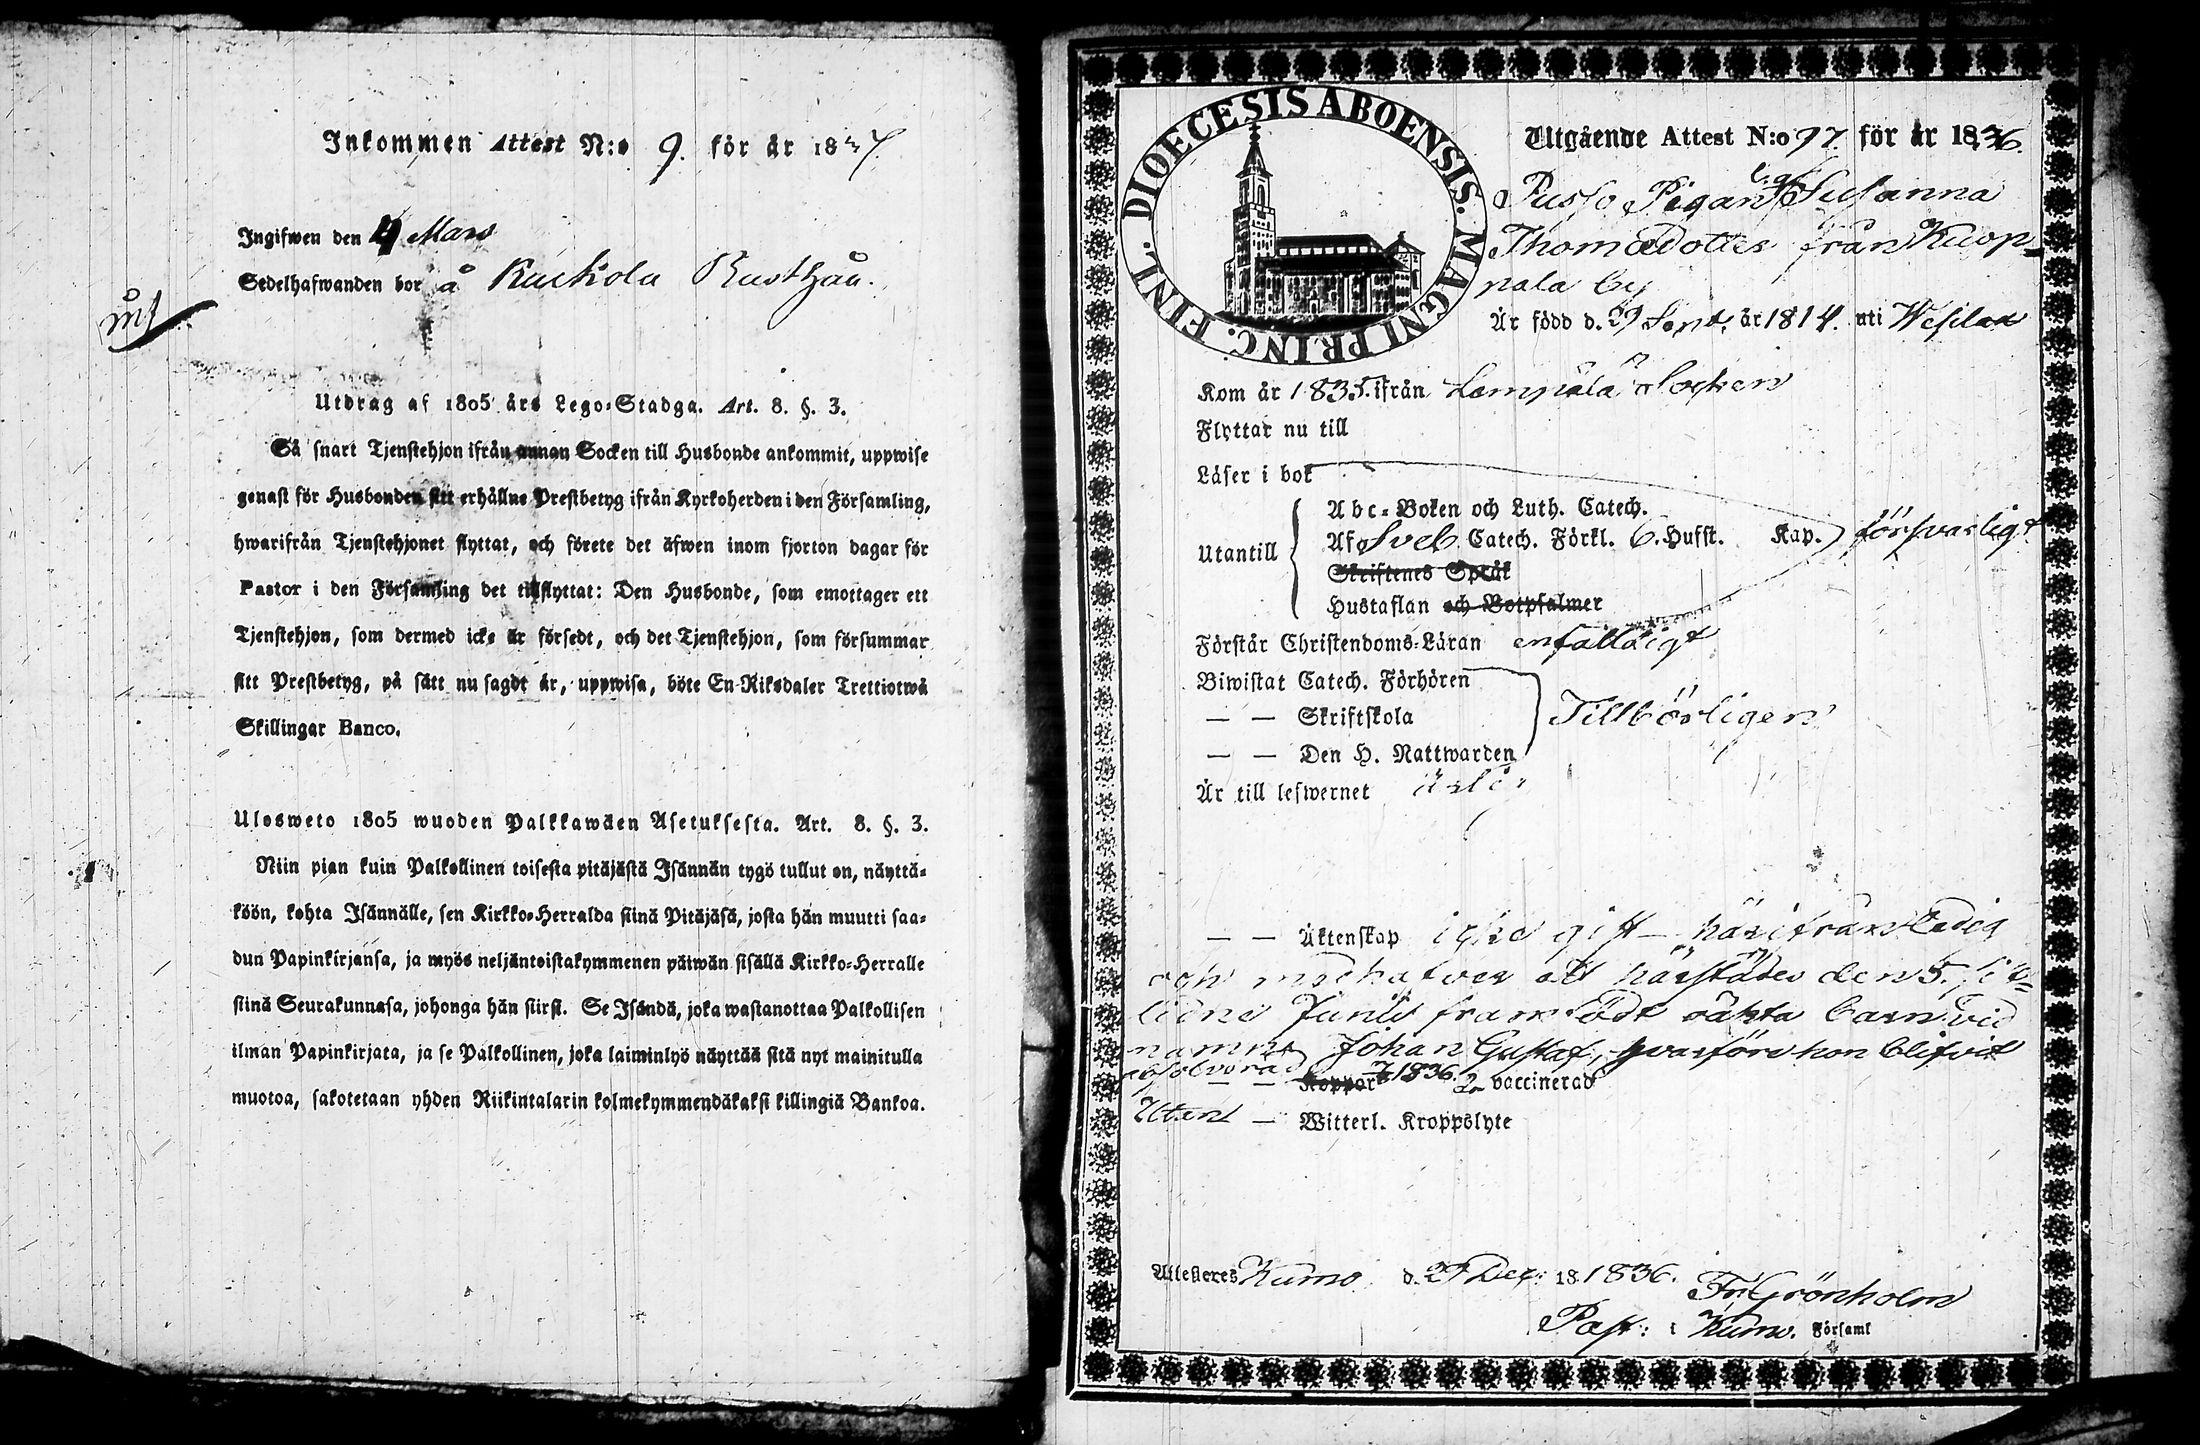 Inkommen Attest N:o 9. för år 1837.
Ingifwen den 4 Mars
Sedelhafwanden bor å Kuckola Rusthåll.
Utdrag af 1805 års Lego-Stadga. Art. 8. §. 3.
Så snart Tjenstehjon ifrån annan Socken till Husbonde ankommit, uppwise
genast för Husbonden sitt erhållne Prestbetyg ifrån Kyrkoherden i den Församling,
hwarifrån Tjenstehjonet flyttat, och förete det äfwen inom fjorton dagar för
Pastor i den Församling det tillflyttat: Den Husbonde, som emottager ett
Tjenstehjon, som dermed icke är försedt, och det Tjenstehjon, som försummar
sitt Prestbetyg, på sätt nu sagdt är, uppwisa, böte En Riksdaler Trettiotwå
Skillingar Banco.
Ulosweto 1805 wuoden Palkkawäen Asetuksesta. Art. 8. §. 3.
Niin pian kuin Palkollinen toisesta pitäjästä Isännän tygö tullut on, näyttä-
köön, kohta Isännälle, sen Kirkko-Herralda siinä Pitäjäsä, josta hän muutti saa-
dun Papinkirjansa, ja myös neljäntoistakymmenen päiwän sisällä Kirkko-Herralle
siinä Seurakunnasa, johonga hän siirsi. Se Isändä, joka wastanottaa Palkollisen
ilman Papinkirjata, ja se Palkollinen, joka laiminlyö näyttää sitä nyt mainitulla
muotoa, sakotetaan yhden Riikintalarin kolmekymmendäkaksi killingiä Bankoa.
DIOECESIS ABOENSIS. MAGNI PRINC. FINL.
Utgående Attest N:o 97 för år 1836.
Pusso Pigan Susanna
Thomædotter från Kuop-
pala by
Är född d. 29 Sept. år 1814. uti Wesilax
Kom år 1835. ifrån Lempälä Socken
Flyttar nu till
Läser i bok
Abc-Boken och Luth. Catech.
Utantill Af Sveb. Catech. Förkl. 6. Hufst. Kap. försvarligt
Skriftenes Språk
Hustaflan och Botpsalmer
Förstår Christendoms-Läran enfalldigt
Biwistat Catech. Förhören
— — Skriftskola Tillbörligen
— — Den H. Nattwarden
Är till lefwernet ärlig
— — Äktenskap icke gift — härifrån Ledig
och medhafver ett härstädes den 5. sist-
lidne Junii framfödt oäkta barn vid
namn Johan Gustaf, hvarföre hon blifvit
absolverad 1836.
— — Koppor vaccinerad
Utan — Witterl. Kroppslyte
Attesteres Kumo d. 29 Dec: 18 1836.
Fr. Grönholm
Past: i Kumo. Församl